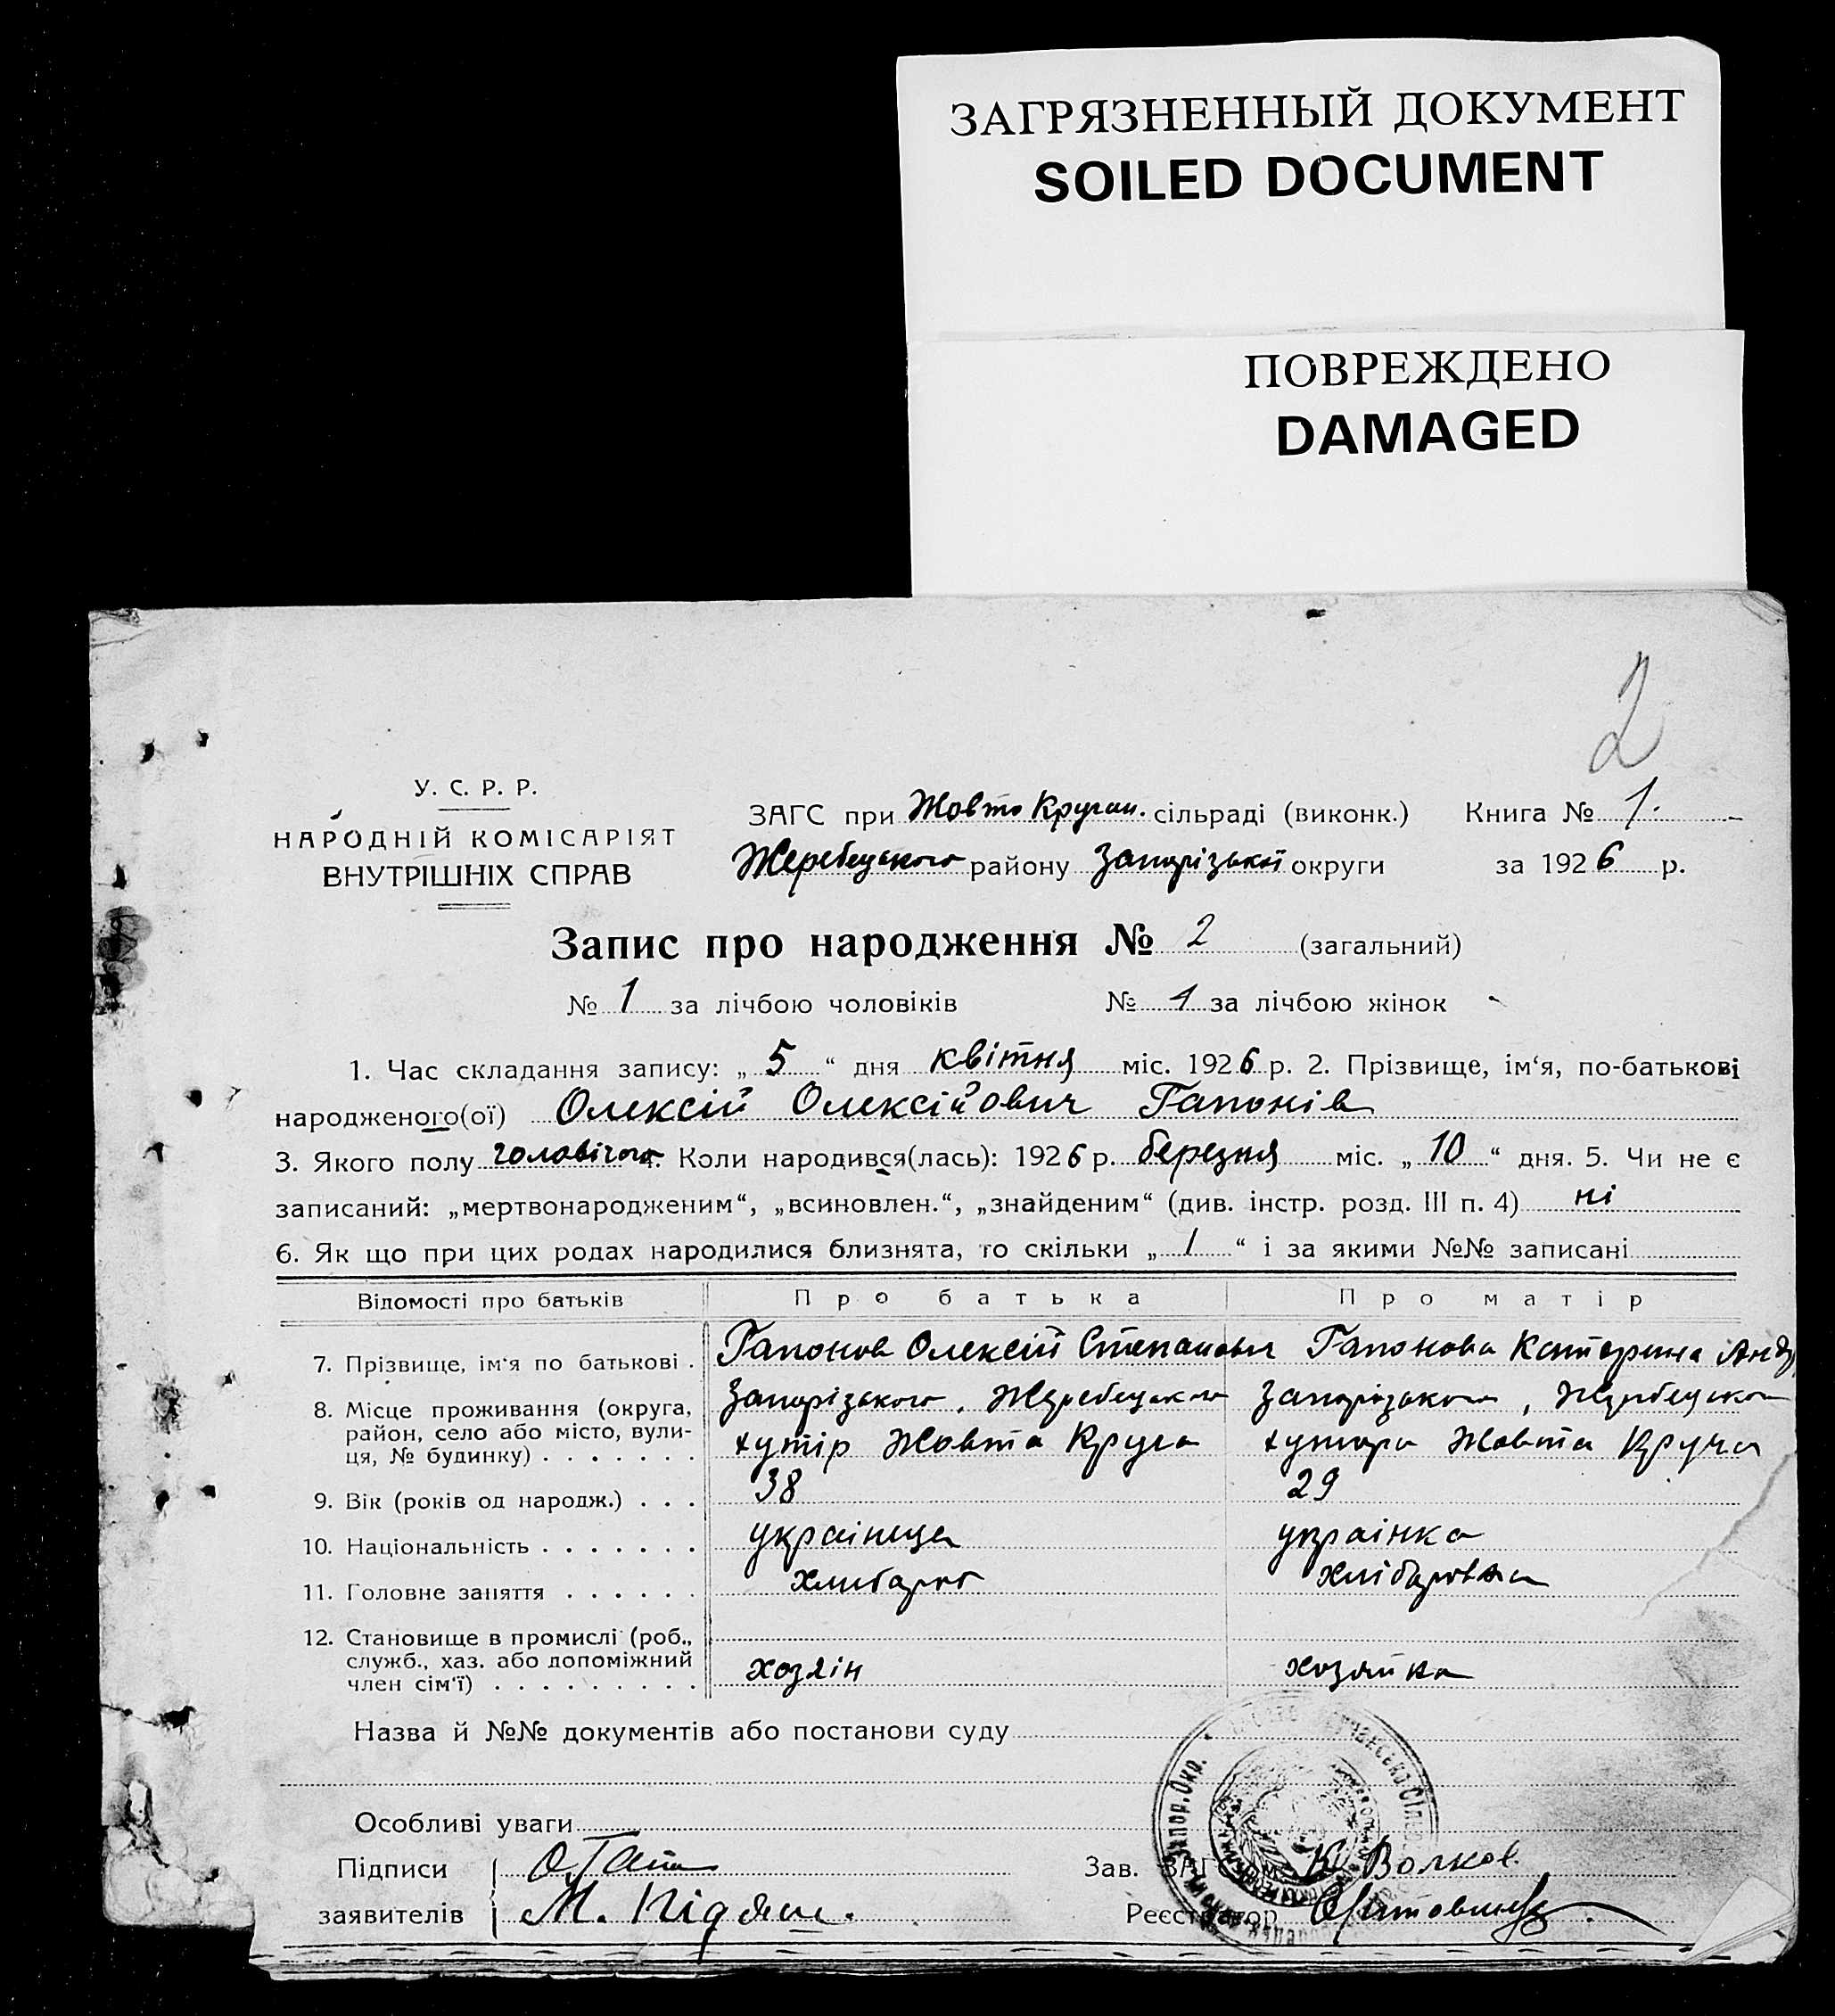 ЗАГРЯЗНЕННЫЙ ДОКУМЕНТ
SOILED DOCUMENT
ПОВРЕЖДЕНО
DAMAGED
2
У. С. Р. Р.
НАРОДНІЙ КОМІСАРІЯТ
ВНУТРІШНІХ СПРАВ
ЗАГС при Жовто Круган. сільраді (виконк.) Книга № 1.
Жеребецького району Запорізької округи за 1926 р.
Запис про народження № 2 (загальний)
№ 1 за лічбою чоловіків № 1 за лічбою жінок
1. Час складання запису: „ 5 “ дня квітня міс. 1926 р. 2. Прізвище, ім‘я, по-батькові
народженого(ої) Олексій Олексійович Гапонів
3. Якого полу чоловічого 4. Коли народився(лась): 1926 р. березня міс. „ 10 “ дня. 5. Чи не є
записаний: „мертвонародженим“, „всиновлен.“, „знайденим“ (див. інстр. розд. III п. 4) ні
6. Як що при цих родах народилися близнята, то скільки „ 1 “ і за якими №№ записані
Відомості про батьків Про батька Про матір
7. Прізвище, ім‘я по батькові . Гапонов Олексій Степанович Гапонова Катерина Анд
8. Місце проживання (округа, Запорізького, Жеребецького Запорізького, Жеребецького
район, село або місто, вули-
ця, № будинку) . . . . . . . хутір Жовта Круча хутора Жовта Круча
9. Вік (років од народж.) . . . 38 29
10. Національність . . . . . . . українця українка
11. Головне заняття . . . . . . хлибароб хліборобка
12. Становище в промислі (роб.,
служб., хаз. або допоміжний
член сім‘ї) . . . . . . . . . хозяін хозяйка
Назва й №№ документів або постанови суду
Особливі уваги
Підписи О. Гапон Зав. ЗАГС‘ом К. Волков.
заявителів М. Підяш. Реєстратор
Запор. Окр.